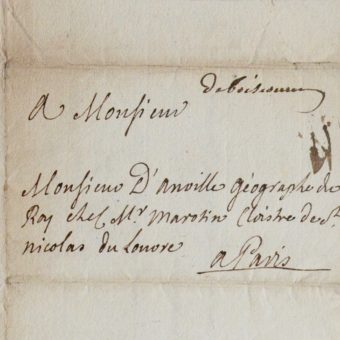 A Monsieur
Monsieur D'anville géographe du
Roy chez Mr Marotin Cloistre de St
nicolas du Louvre
a Paris